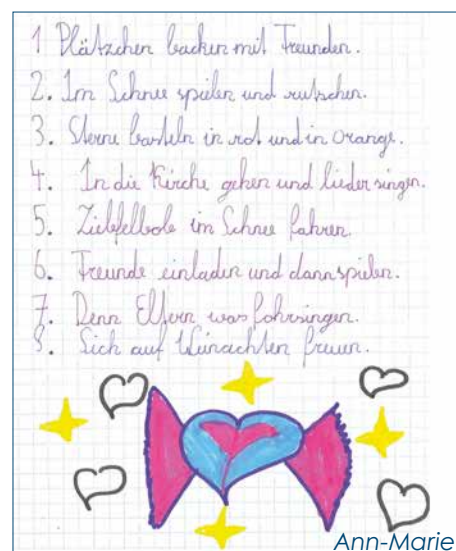 1 Plätzchen backen mit Freunden.
2. Im Schnee spielen und rutschen.
3. Sterne basteln in rot und in orange.
4. In die Kirche gehen und lieder singen.
5. im Schnee fahren.
6. Freunde einladen und dann spielen.
7. Denn Elfern was fohrsingen.
8. Sich auf Winachten freuen.
Ann-Marie